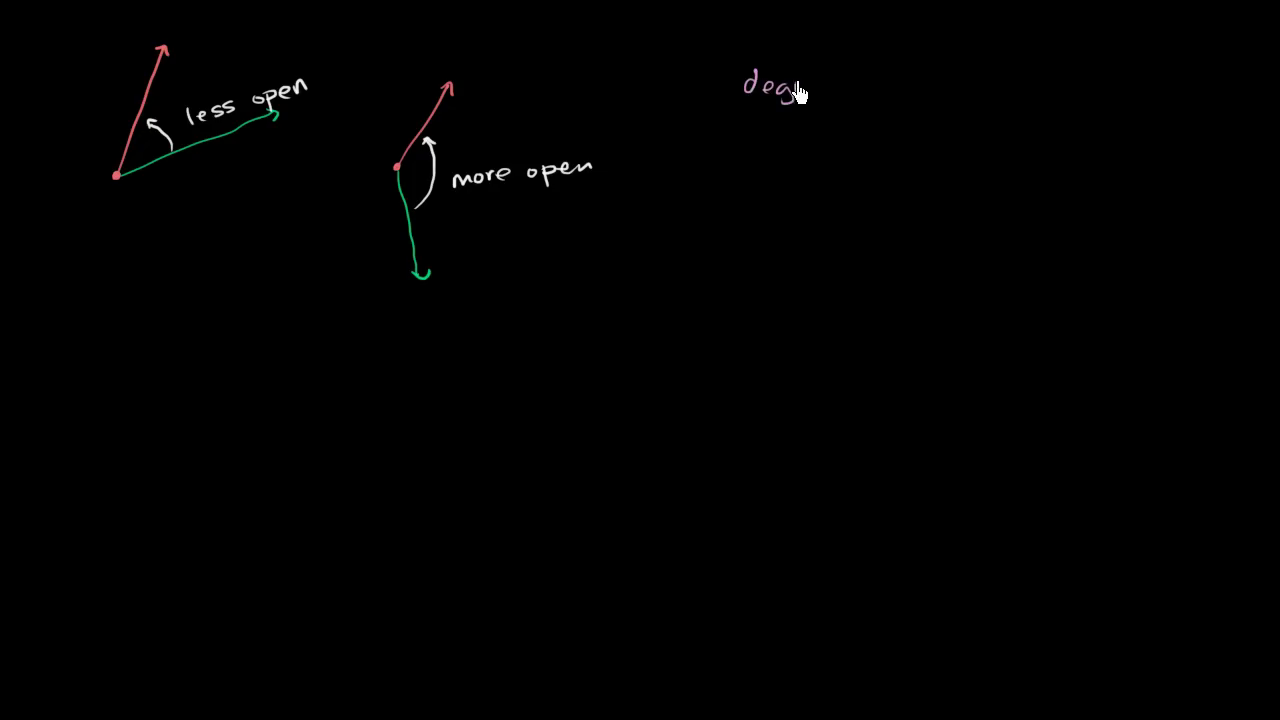 less open
more open
deg